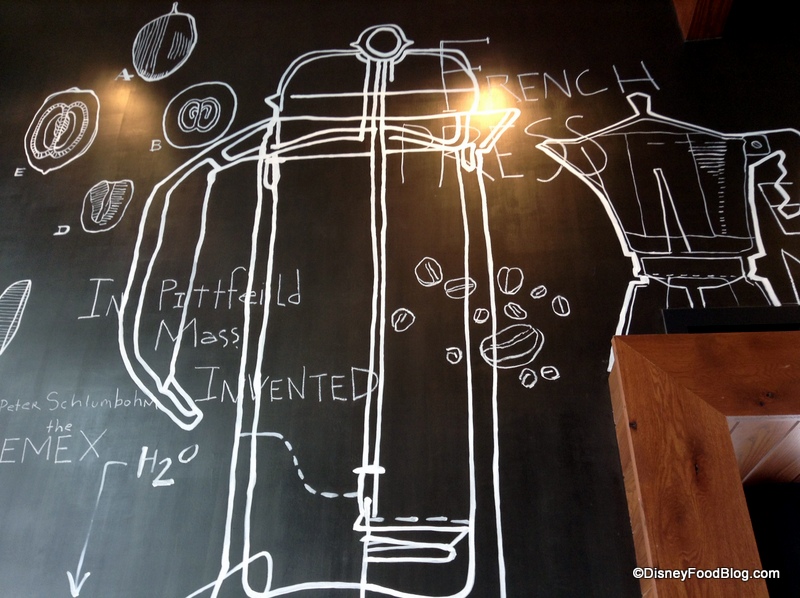 FRENCH
PRESS
A
B
E
D
In Pittfeild
Mass
INVENTED
Peter Schlumbohm
the
EMEX
H2O
©DisneyFoodBlog.com